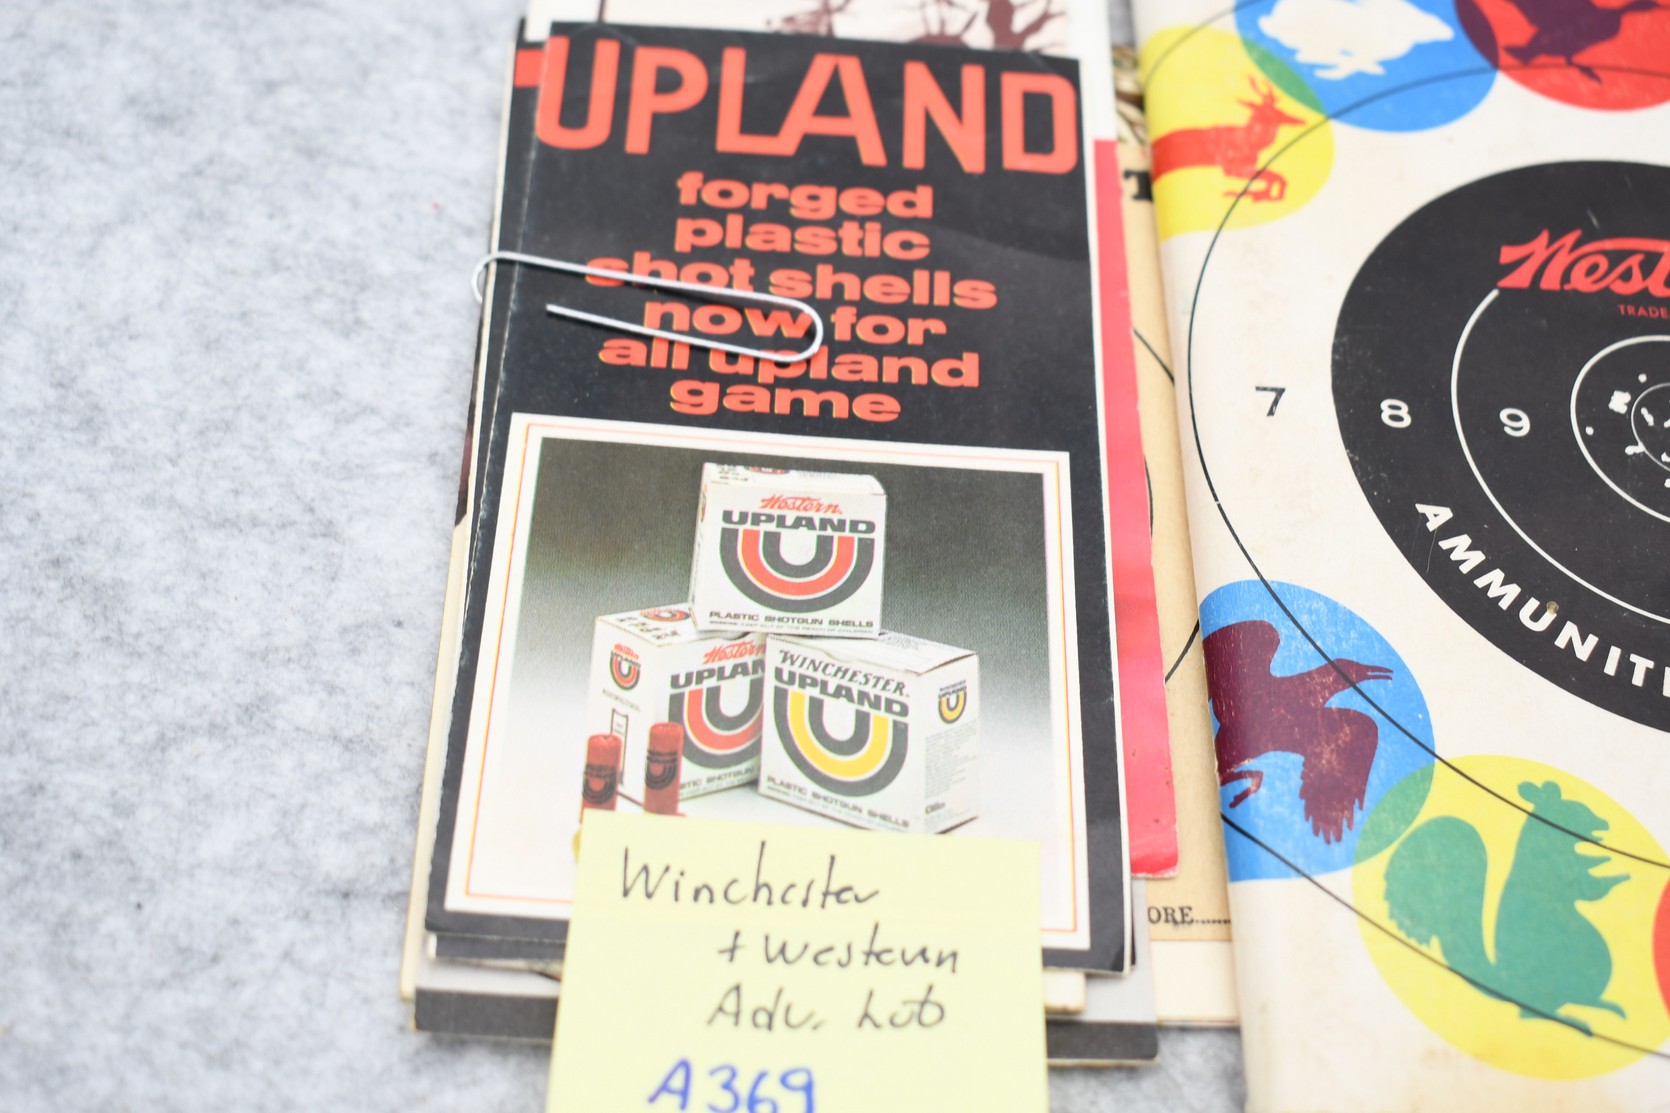 UPLAND
forged
plastic
shot shells
now for
all upland
game
Western
UPLAND
PLASTIC SHOTGUN SHELLS
Western
UPLAND
Western
UPLAND
WINCHESTER
UPLAND
PLASTIC SHOTGUN SHELLS
UPLAND
Winchester
+ Western
Adv. Lot
A369
ORE
West
TRADE
7 8 9
AMMUNITI